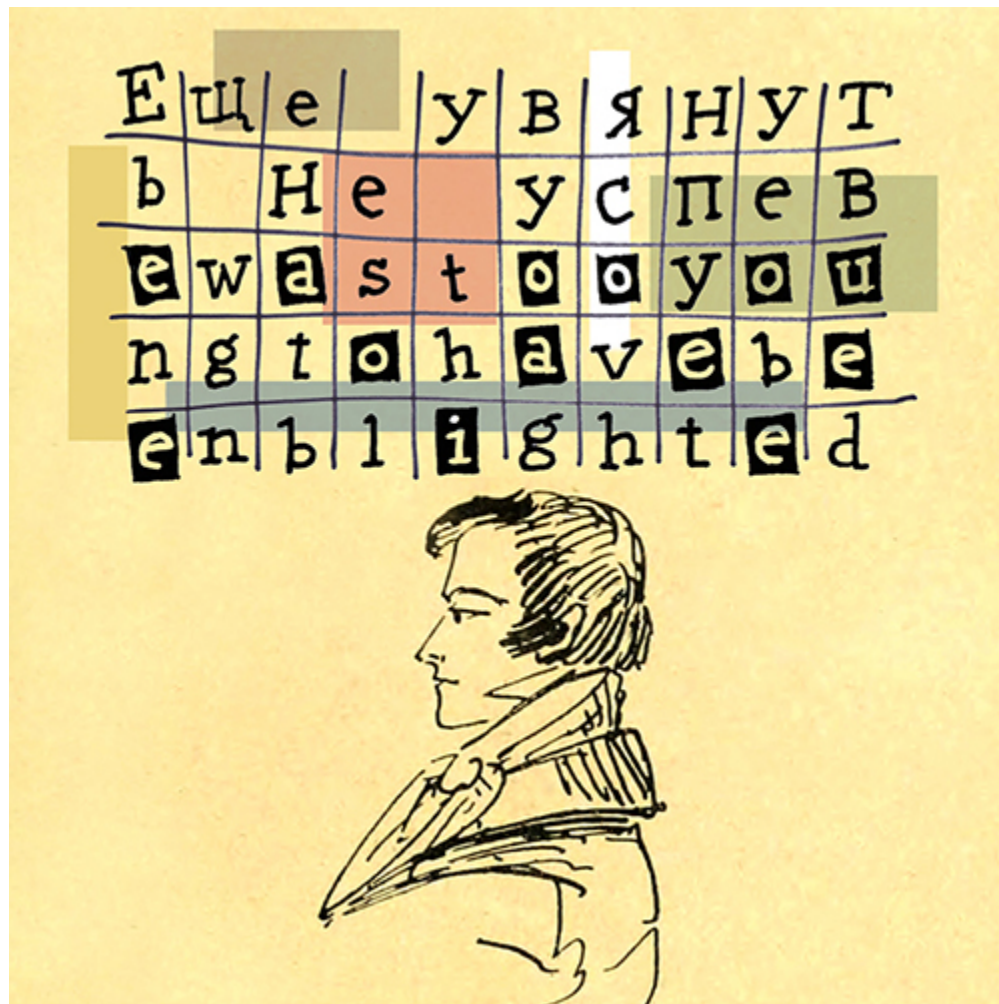 Еще увянут
ь не успев
ewastooyou
ngtohavebe
enblighted